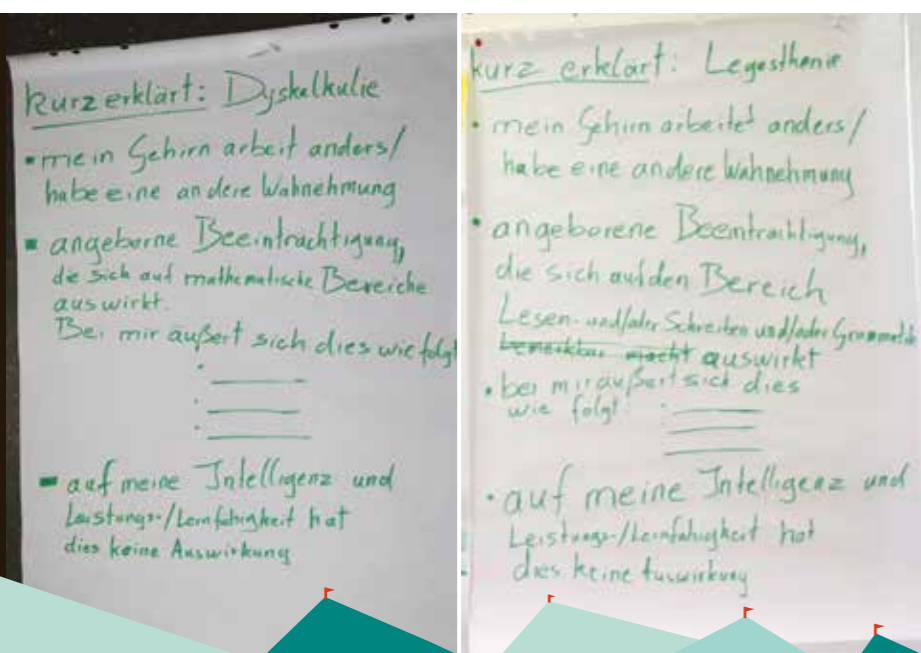 kurz erklärt: Dyskalkulie
• mein Gehirn arbeit anders/
habe eine andere Wahnehmung
▪ angeborne Beeinträchtigung,
die sich auf mathematische Bereiche
auswirkt.
Bei mir äußert sich dies wie folgt
▪ auf meine Intelligenz und
Leistungs-/Lernfähigkeit hat
dies keine Auswirkung
kurz erklärt: Legasthenie
• mein Gehirn arbeitet anders/
habe eine andere Wahnehmung
• angeborene Beeinträchtigung,
die sich auf den Bereich
Lesen- und/oder Schreiben und/oder Grammatik
bemerkbar macht auswirkt
• bei mir äußert sich dies
wie folgt
• auf meine Intelligenz und
Leistungs-/Lernfähigkeit hat
dies keine Auswirkung